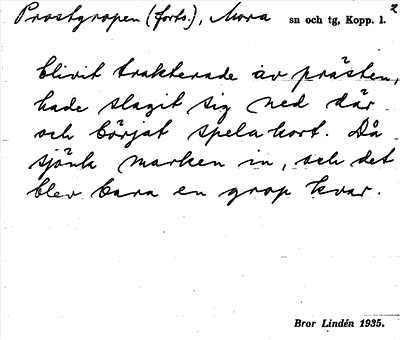 Prostgropen (forts.), Mora sn och tg, Kopp. l. 2
blivit trakterade av prästen,
hade slagit sig ned där
och börjat spela kort. Då
sjönk marken in, och det
blev bara en grop kvar.
Bror Lindén 1935.